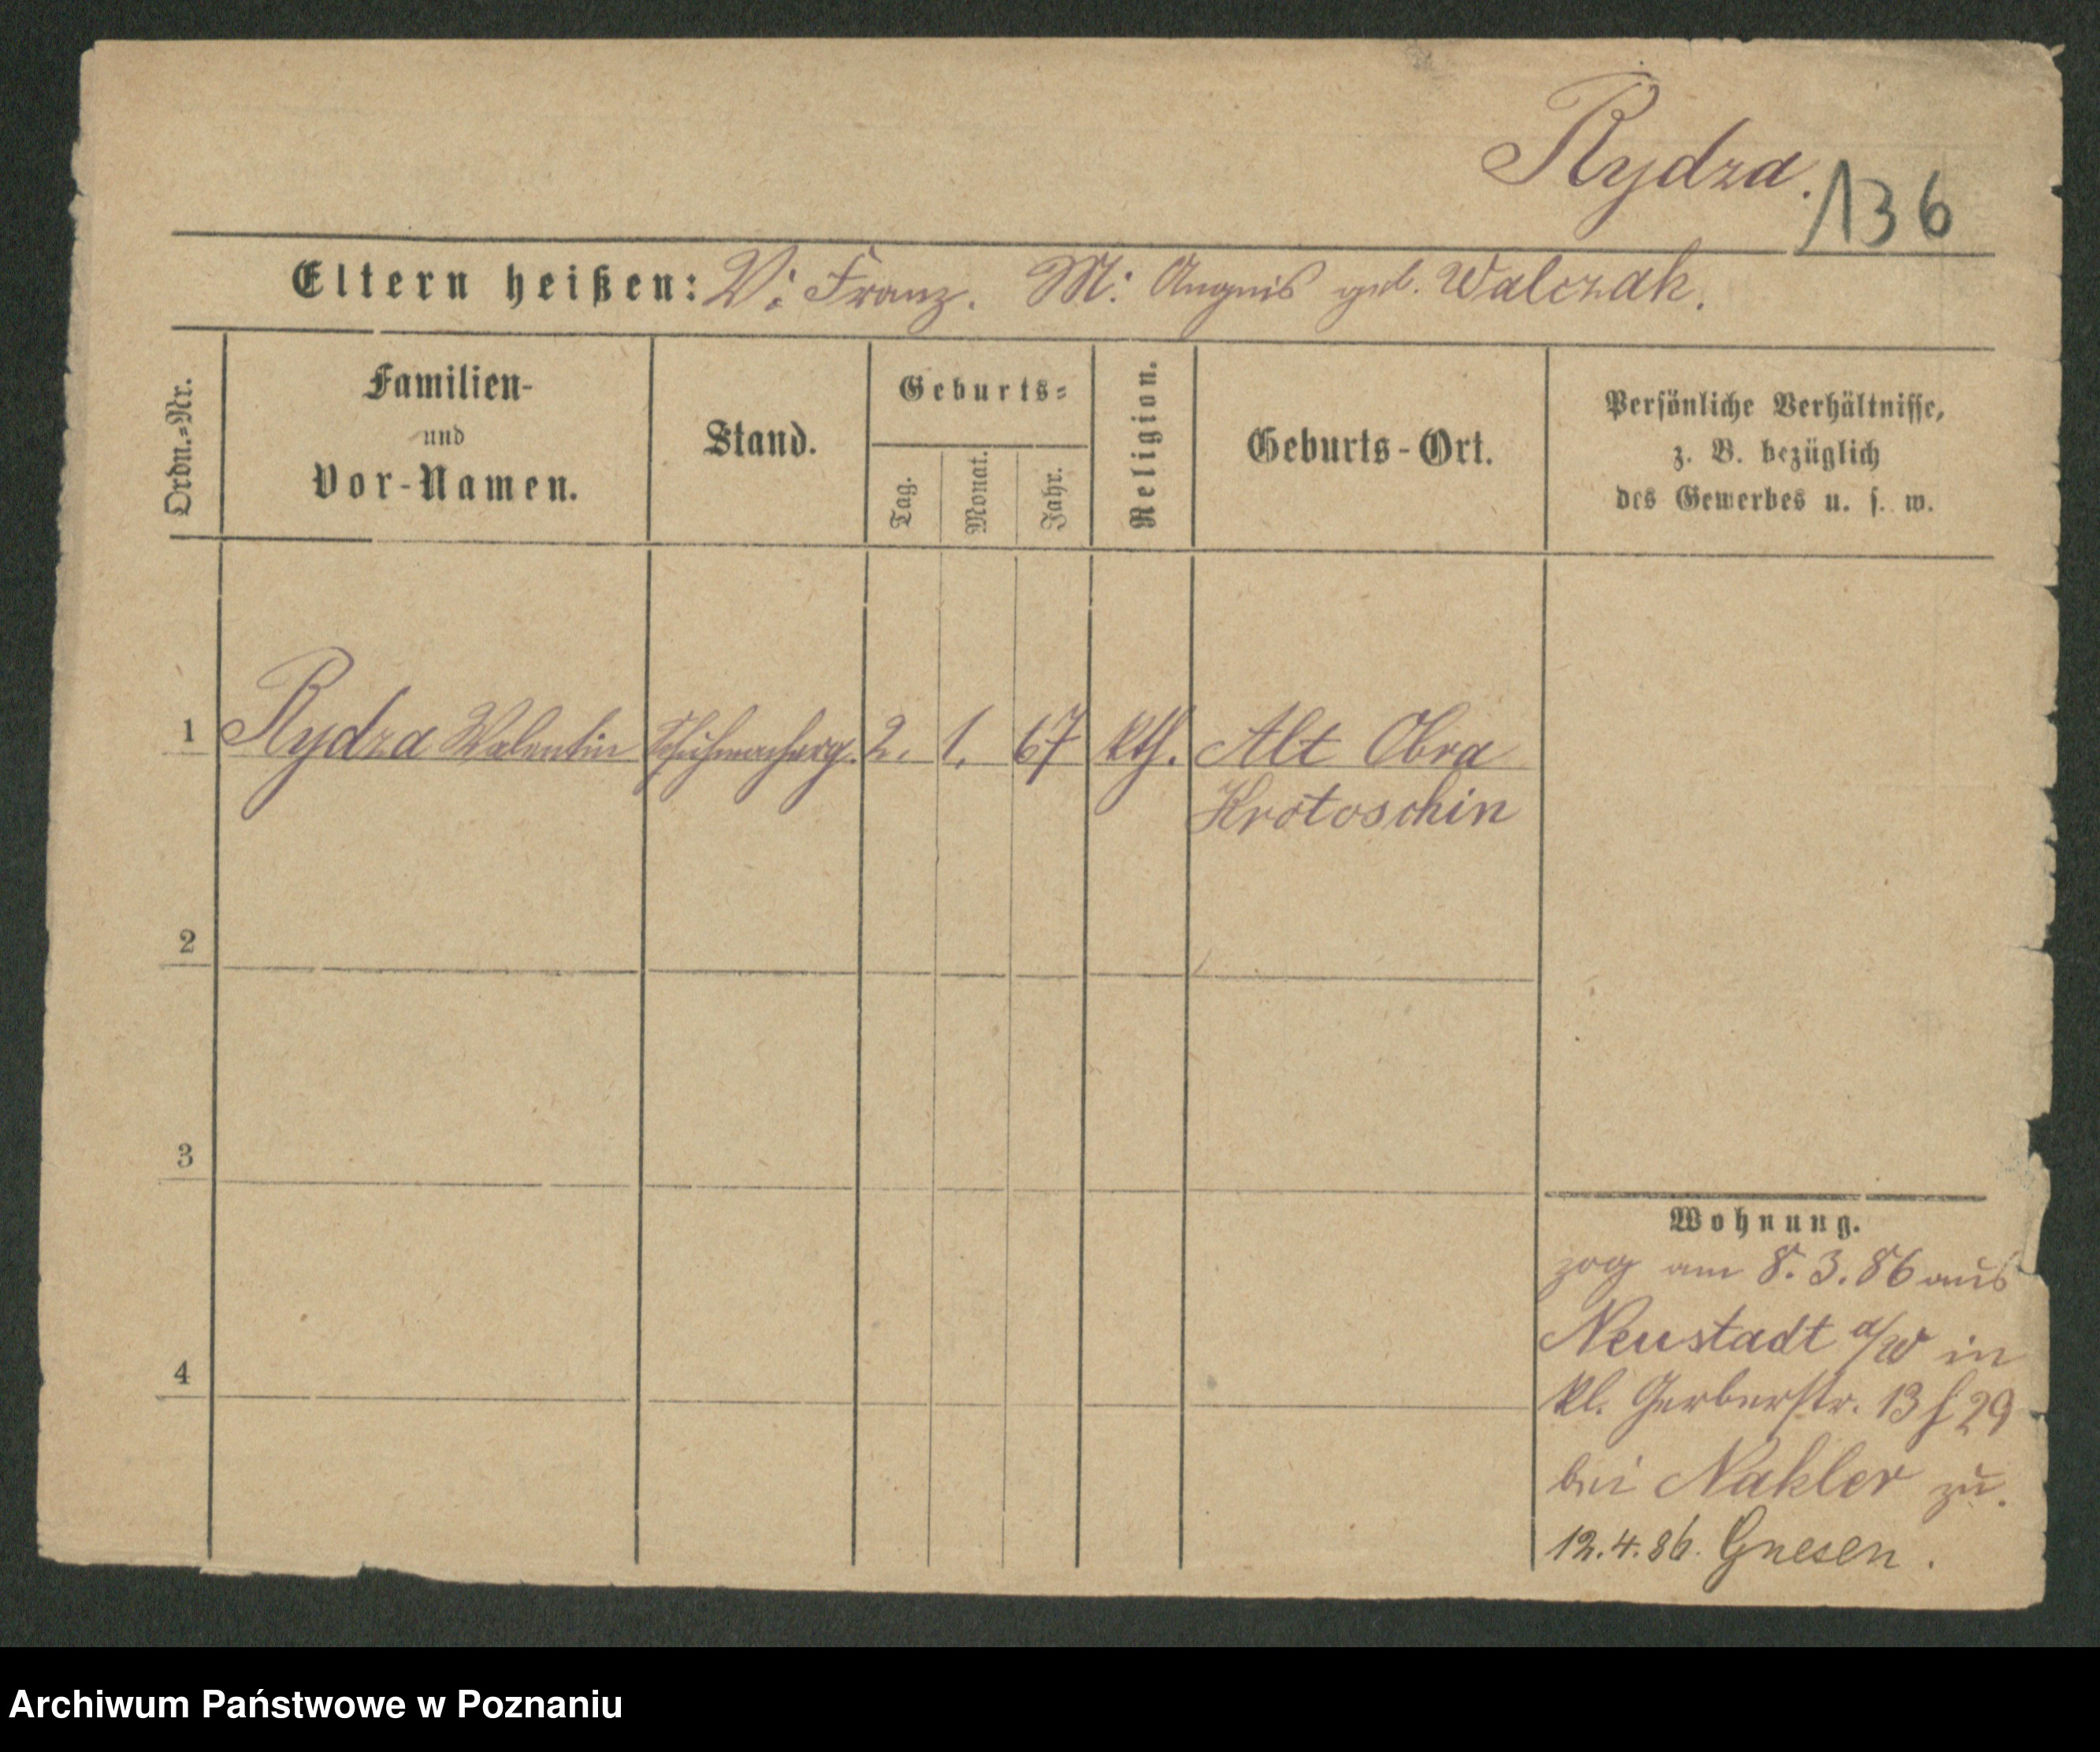 Rydza.
136
Eltern heißen: V: Franz. M: Angnis geb. Walczak.
Ordn.=Nr.
Familien-
und
Vor-Namen.
Stand.
Geburts=
Tag.
Monat.
Jahr.
Religion.
Geburts-Ort.
Persönliche Verhältnisse,
z. B. bezüglich
des Gewerbes u. s. w.
1 Rydza Valentin Schuhmacherg. 2. 1. 67 kth. Alt Obra
Krotoschin
2
3
4
Wohnung.
zog am 8. 3. 86 aus
Neustadt a/W in
kl. Gerberstr. 13 f 29
bei Nakler zu.
12.4.86. Gnesen.
Archiwum Państwowe w Poznaniu